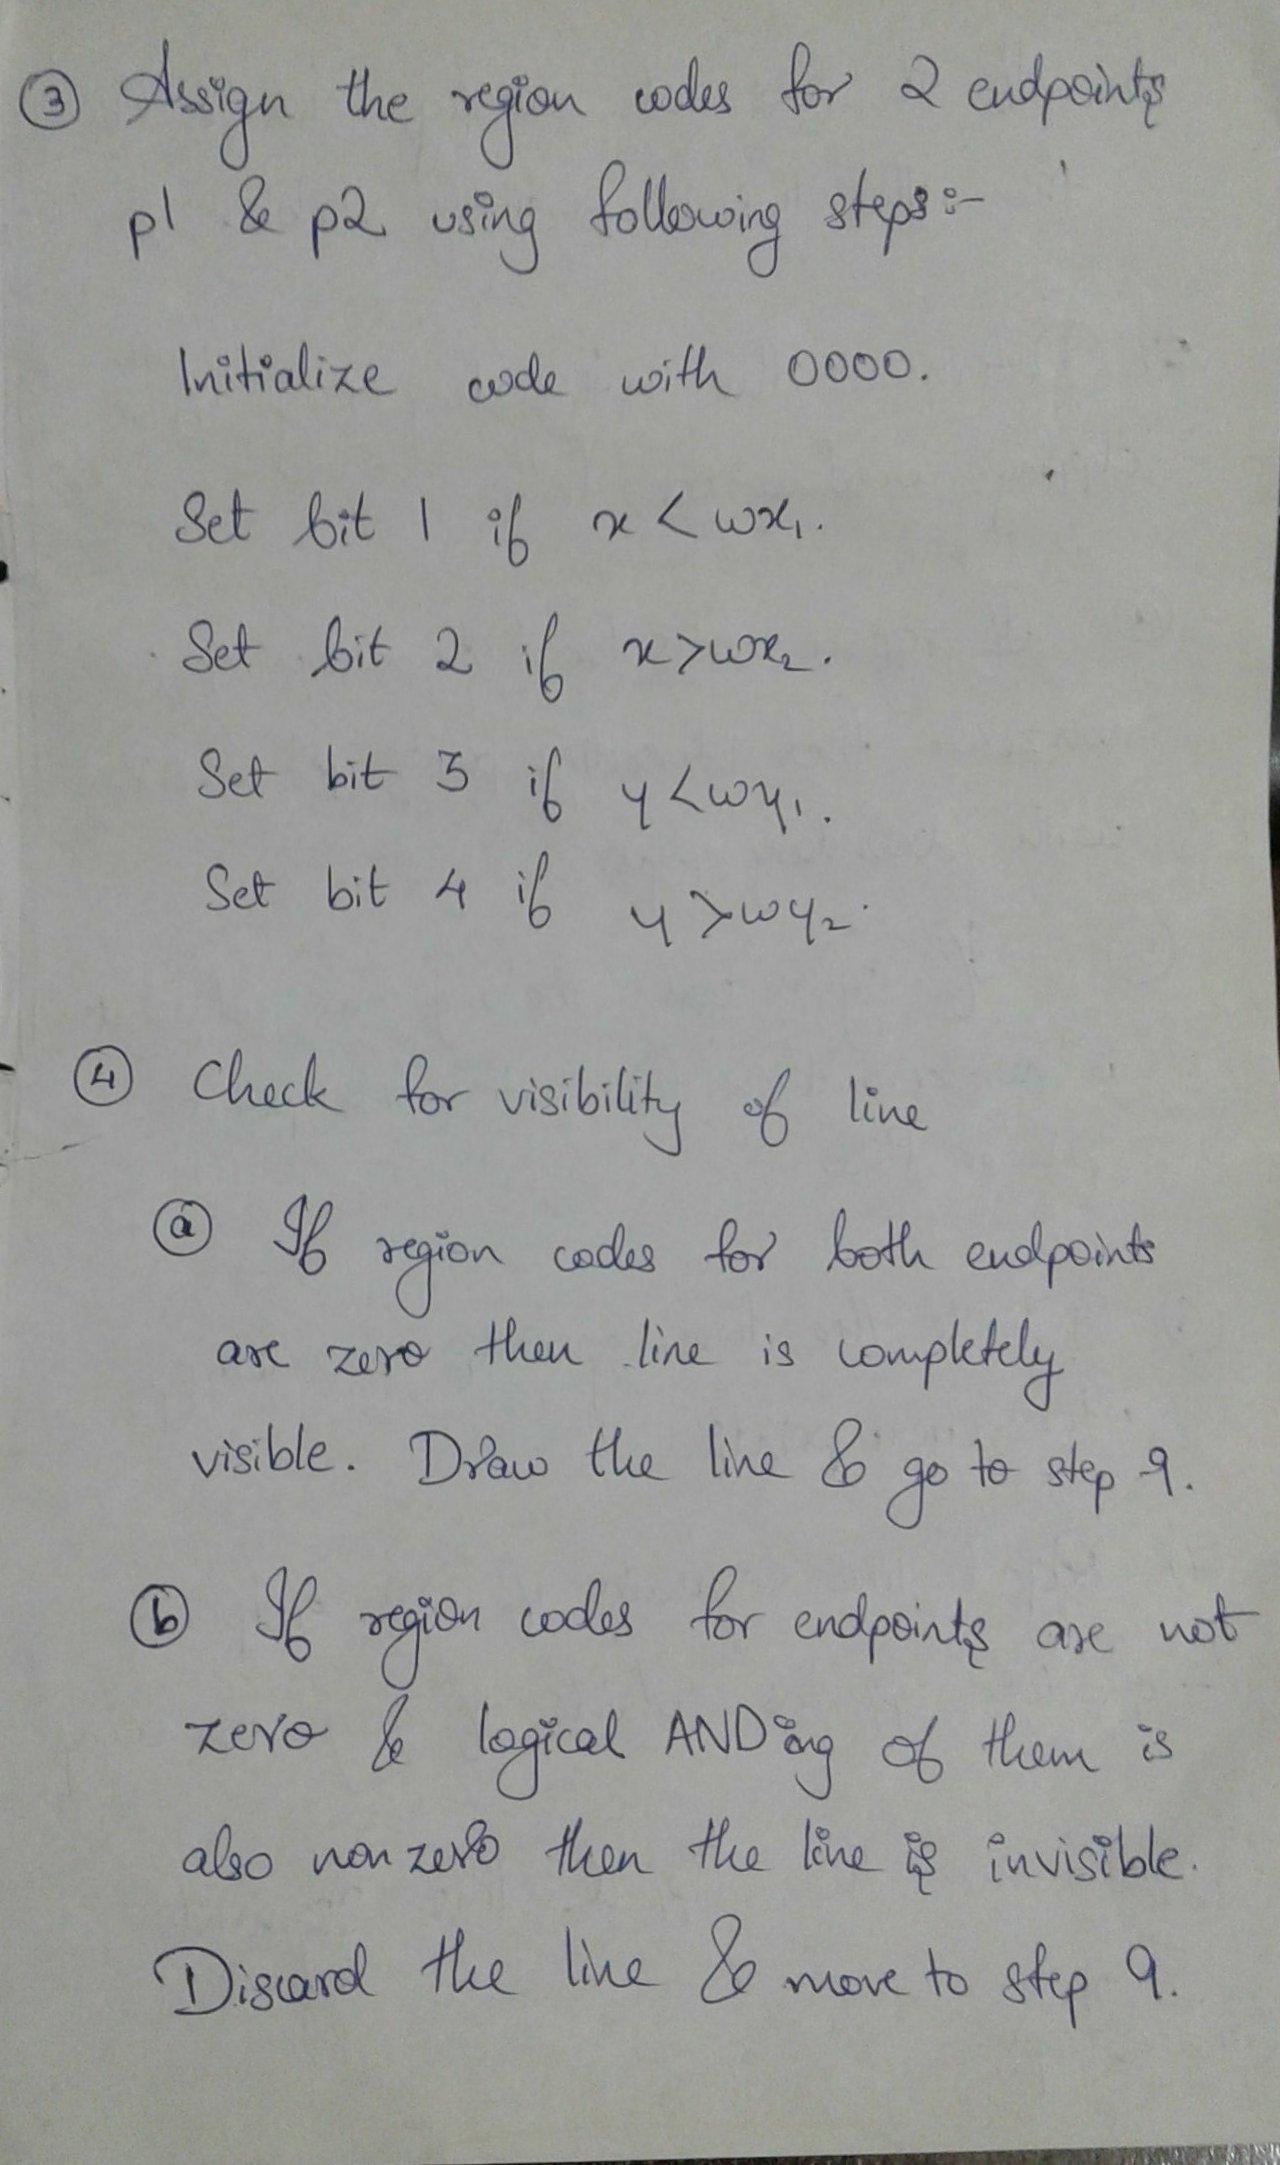 ③ Assign the region codes for 2 endpoints
p1 & p2 using following steps:-
Initialize code with 0000.
Set bit 1 if x < wx₁.
Set bit 2 if x > wx₂.
Set bit 3 if y < wy₁.
Set bit 4 if y > wy₂.
④ Check for visibility of line
ⓐ If region codes for both endpoints
are zero then line is completely
visible. Draw the line & go to step 9.
ⓑ If region codes for endpoints are not
zero & logical ANDing of them is
also nonzero then the line is invisible.
Discard the line & move to step 9.